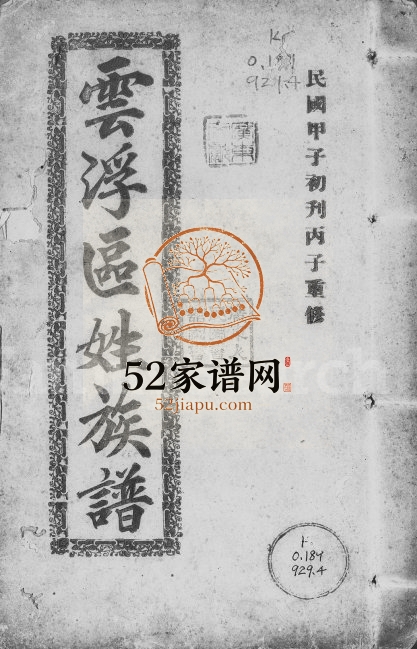 民國甲子初刊丙子重修
雲浮區姓族譜
K
0.184
929.4
52家谱网
52jiapu.com
K
0.184
929.4